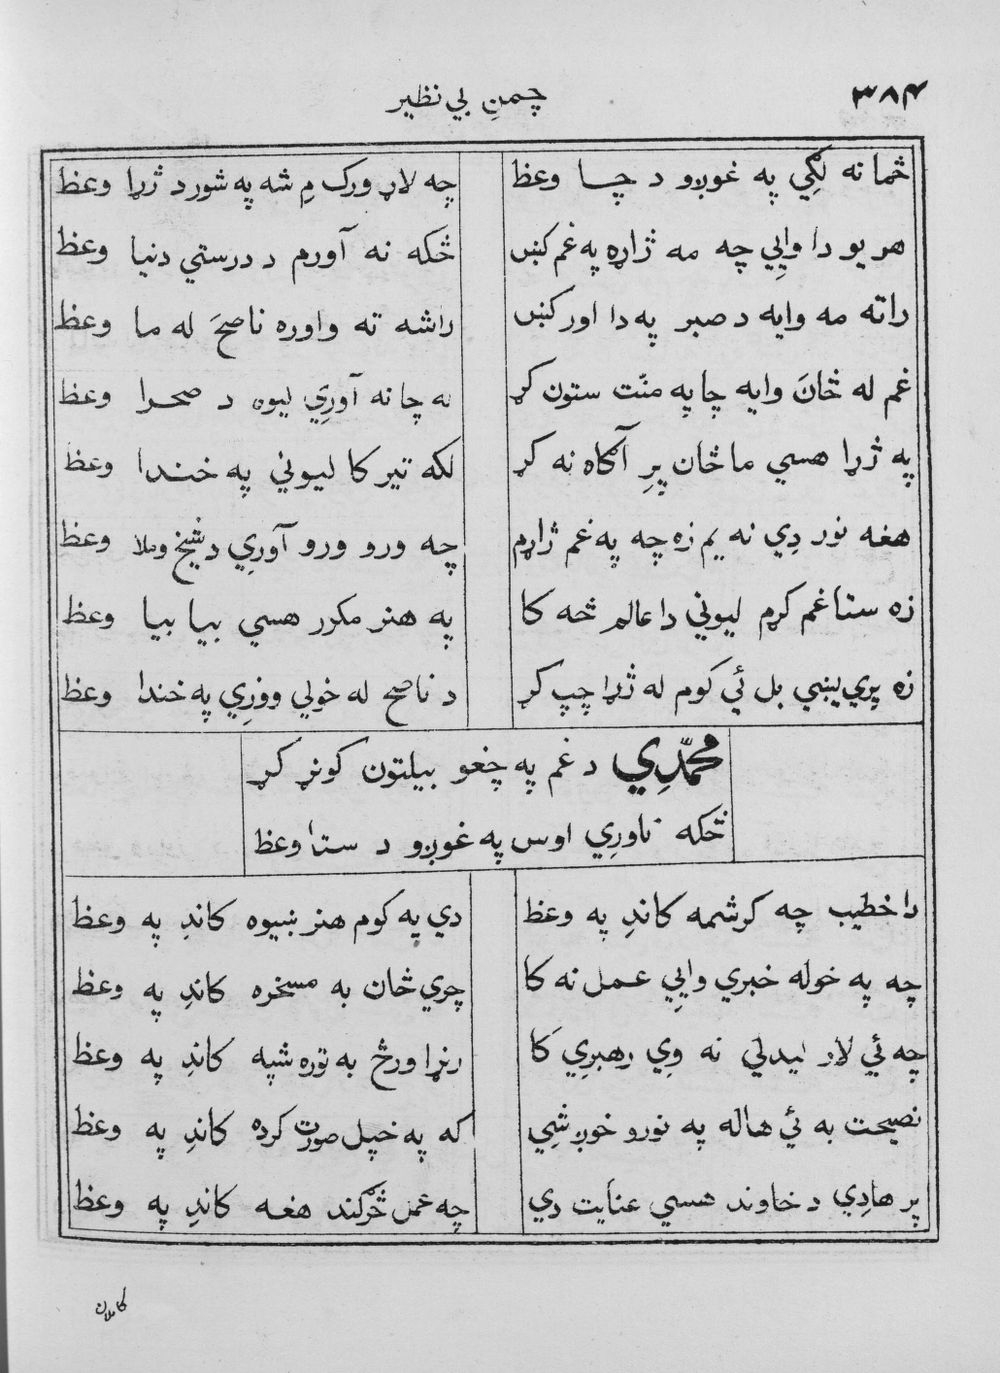 ۳۸۴
چمنِ بي نظير
څما نه لګي په غوږو د چا وعظ
چه لاړ ورک مِ شه په شور د ژړا وعظ
هر يو دا وايِي چه مه ژاړه په غم کښ
څکه نه آورم د درستي دنيا وعظ
راته مه وايه د صبر په دا اور کښ
راشه ته واوره ناصحَ له ما وعظ
غم له ځانَ وايه چا په منّت ستون کړ
له چا نه آورِي ليوه د صحرا وعظ
په ژړا هسي ما ځان پرِ آګاه نه کړ
لکه تير کا ليوني په خندا وعظ
هغه نور دِي نه يم زه چه په غم ژاړم
چه ورو ورو آورِي د شيخ و ملا وعظ
زه ستا غم کړم ليوني دا عالم څه کا
په هنر مکرر هسي بيا بيا وعظ
زه پرِي يښي بل ئي کوم له ژړا چپ کړ
د ناصح له خولي ووزِي په خندا وعظ
محمّدِي د غم په چغو بيلتون کوڼړ کړ
څکه ناورِي اوس په غوږو د ستا وعظ
دا خطيب چه کرشمه کاندِ په وعظ
دي په کوم هنر ښيوه کاندِ په وعظ
چه په خوله خبري وايِي عمل نه کا
چرِي ځان به مسخره کاندِ په وعظ
چه ئي لار ليدلي نه وِي رهبرِي کا
رنړا ورځ به توره شپه کاندِ په وعظ
نصيحت به ئي هاله په نورو خوږ شِي
که په خپل صورت کرده کاندِ په وعظ
پر هادِي د خاوند هسي عنايت دي
چه عمل څرګند هغه کاندِ په وعظ
کاملان